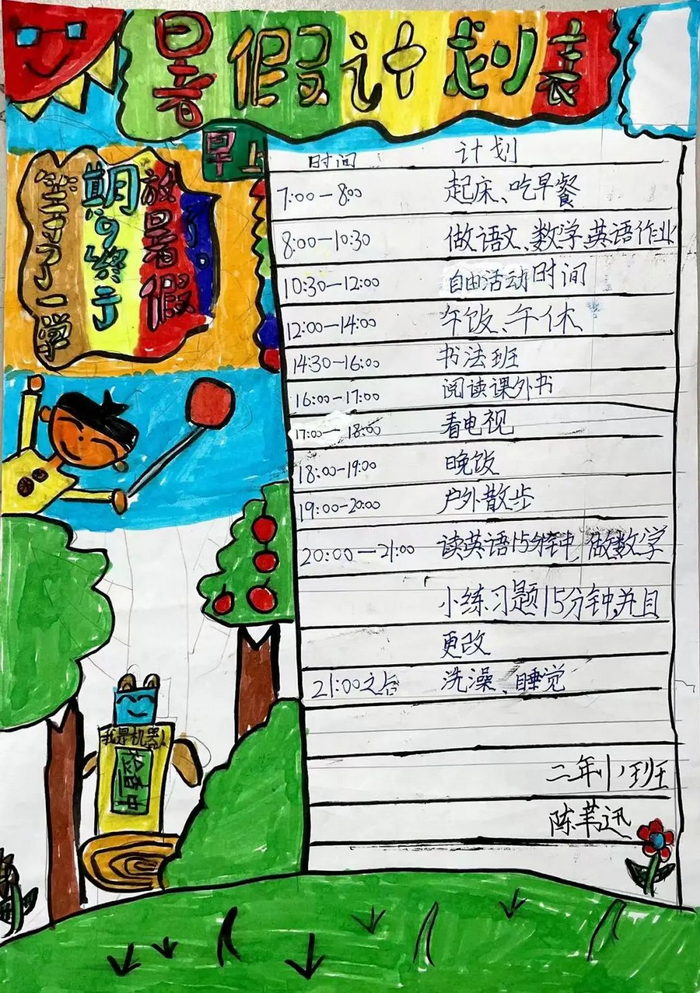 暑假计划表
早上
时间 计划
7:00—8:00 起床、吃早餐
8:00—10:30 做语文、数学、英语作业
10:30—12:00 自由活动时间
12:00—14:00 午饭、午休
14:30—16:00 书法班
16:00—17:00 阅读课外书
17:00—18:00 看电视
18:00—19:00 晚饭
19:00—20:00 户外散步
20:00—21:00 读英语15分钟,做数学
小练习题15分钟,并且
更改
21:00之后 洗澡、睡觉
二年八班
等了一学
期的终于
放暑假
了。
我是机器人